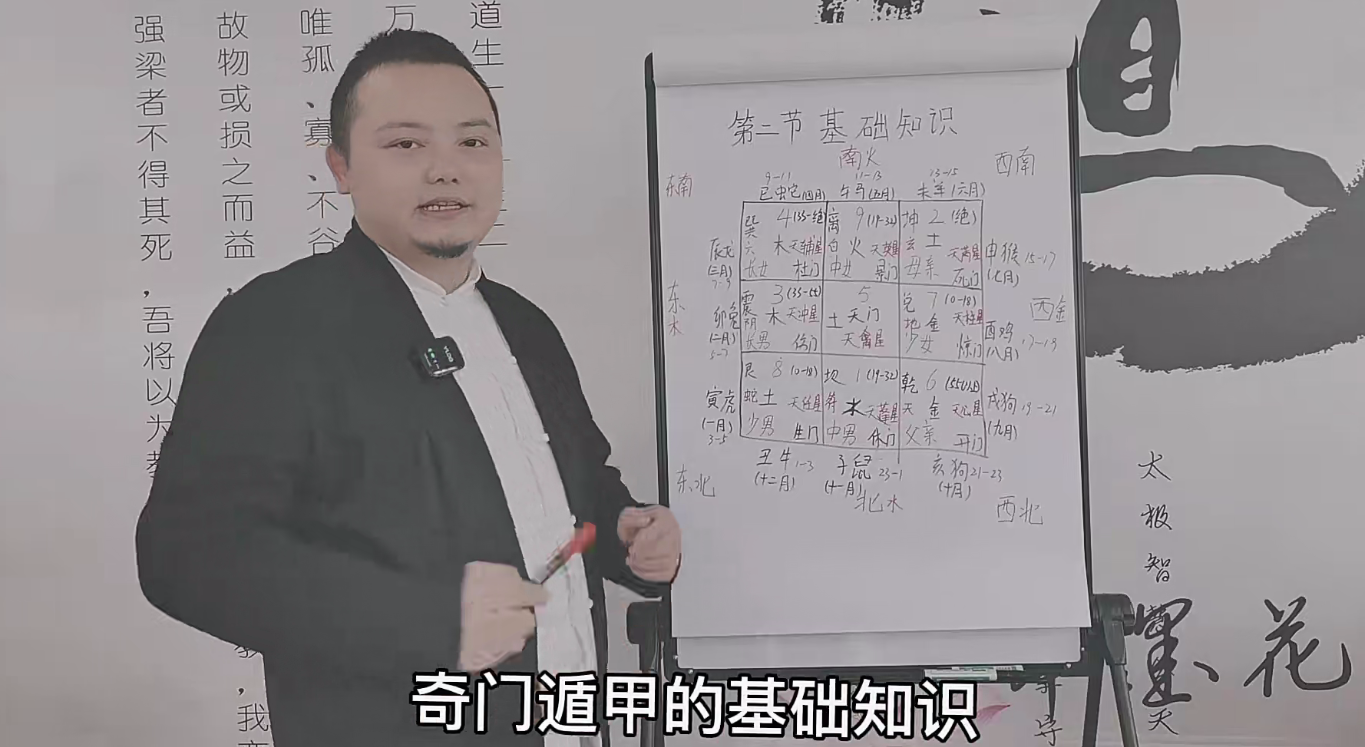 道生一
万
唯孤、寡、不谷
故物或损之而益，
强梁者不得其死，吾将以为
，我
第二节 基础知识
南火
东南
西南
9-11
11-13
13-15
巳蛇(四月)
午马(五月)
未羊(六月)
巽 4(33-绝)
离 9(19-32)
坤 2(绝)
六 木 天辅星
白 火 天英星
玄 土
长女 杜门
中女 景门
母亲 死门
辰龙
(三月)
7-9
申猴 15-17
(七月)
东木
西金
震 3
5
兑 7(0-18)
阴 木 天冲星
土 天门
地 金 天柱星
长男 伤门
天禽星
少女 惊门
卯兔
(二月)
5-7
酉鸡 17-19
(八月)
艮 8(0-18)
坎 1(19-32)
乾 6
蛇 土 天任星
符 水 天蓬星
天 金 天心星
少男 生门
中男 休门
父亲 开门
寅虎
(一月)
3-5
戌狗 19-21
(九月)
丑牛 1-3
(十二月)
子鼠 23-1
(十一月)
亥狗 21-23
(十月)
东北
北水
西北
太极智慧
墨花
天
导
奇门遁甲的基础知识